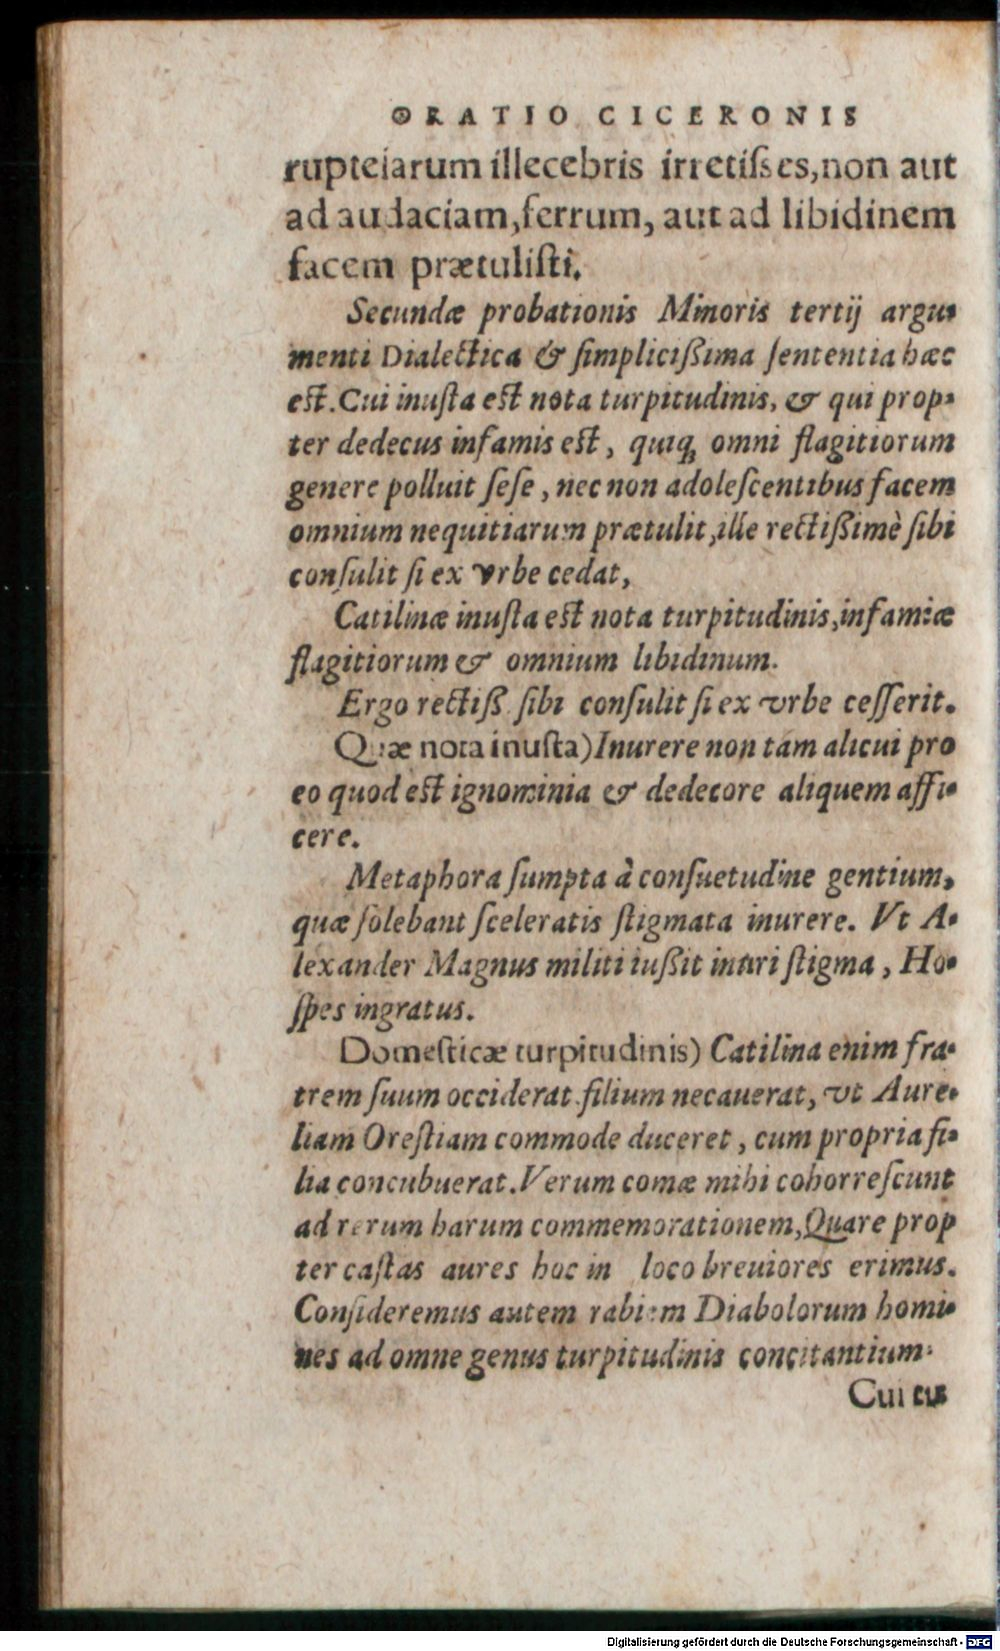 ORATIO CICERONIS
rupteiarum illecebris irretiſses,non aut
ad audaciam,ferrum, aut ad libidinem
facem prætuliſti.
Secundæ probationis Minoris tertij argu-
menti Dialectica & ſimpliciſsima ſententia hæc
eſt.Cui inuſta eſt nota turpitudinis, & qui prop-
ter dedecus infamis eſt, quiq; omni flagitiorum
genere polluit ſeſe, nec non adoleſcentibus facem
omnium nequitiarum prætulit,ille rectißimè ſibi
conſulit ſi ex vrbe cedat,
Catilinæ inuſta eſt nota turpitudinis,infamiæ
flagitiorum & omnium libidinum.
Ergo rectiß. ſibi conſulit ſi ex vrbe ceſſerit.
Quæ nota inuſta)Inurere non tam alicui pro
eo quod eſt ignominia & dedecore aliquem affi-
cere.
Metaphora ſumpta à conſuetudine gentium,
quæ ſolebant ſceleratis ſtigmata inurere. Vt A-
lexander Magnus militi iußit inuri ſtigma, Ho-
ſpes ingratus.
Domeſticæ turpitudinis) Catilina enim fra-
trem ſuum occiderat.filium necauerat, vt Aure-
liam Oreſtiam commode duceret, cum propria fi-
lia concubuerat.Verum comæ mihi cohorreſcunt
ad rerum harum commemorationem,Quare prop
ter caſtas aures hoc in loco breuiores erimus.
Conſideremus autem rabiem Diabolorum homi-
nes ad omne genus turpitudinis concitantium.
Cui cu
Digitalisierung gefördert durch die Deutsche Forschungsgemeinschaft - DFG